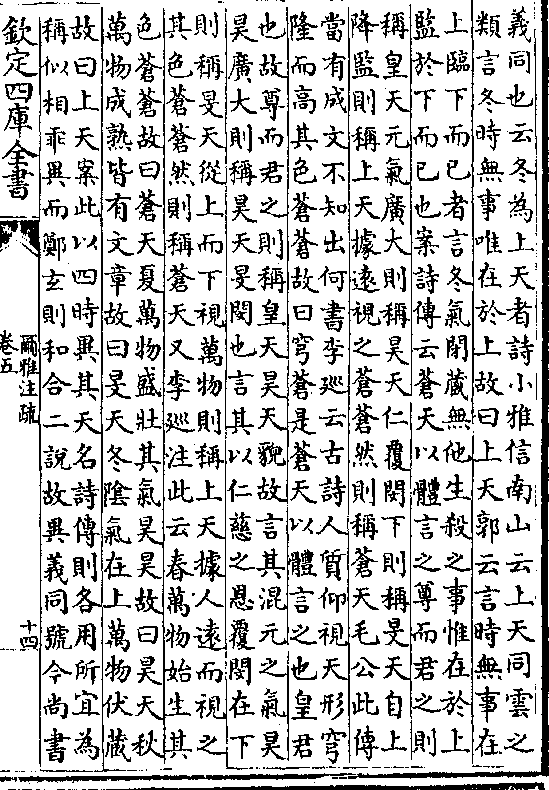 義同也云冬為上天者詩小雅信南山云上天同雲之
類言冬時無事唯在於上故曰上天郭云言時無事在
上臨下而已者言冬氣閉藏無他生殺之事惟在於上
監於下而已也案詩傳云蒼天以體言之尊而君之則
稱皇天元氣廣大則稱昊天仁覆閔下則稱旻天自上
降監則稱上天據逺視之蒼蒼然則稱蒼天毛公此傳
當有成文不知出何書李廵云古詩人質仰視天形穹
隆而髙其色蒼蒼故曰穹蒼是蒼天以體言之也皇君
也故尊而君之則稱皇天昊天貌故言其混元之氣昊
昊廣大則稱昊天旻閔也言其以仁慈之恩覆閔在下
則稱旻天從上而下視萬物則稱上天據人逺而視之
其色蒼蒼然則稱蒼天又李廵注此云春萬物始生其
色蒼蒼故曰蒼天夏萬物盛壯其氣昊昊故曰昊天秋
萬物成熟皆有文章故曰旻天冬隂氣在上萬物伏藏
故曰上天案此以四時異其天名詩傳則各用所宜為
稱似相乖異而鄭玄則和合二說故異義同號今尚書
欽定四庫全書
爾雅注疏
卷五
十四